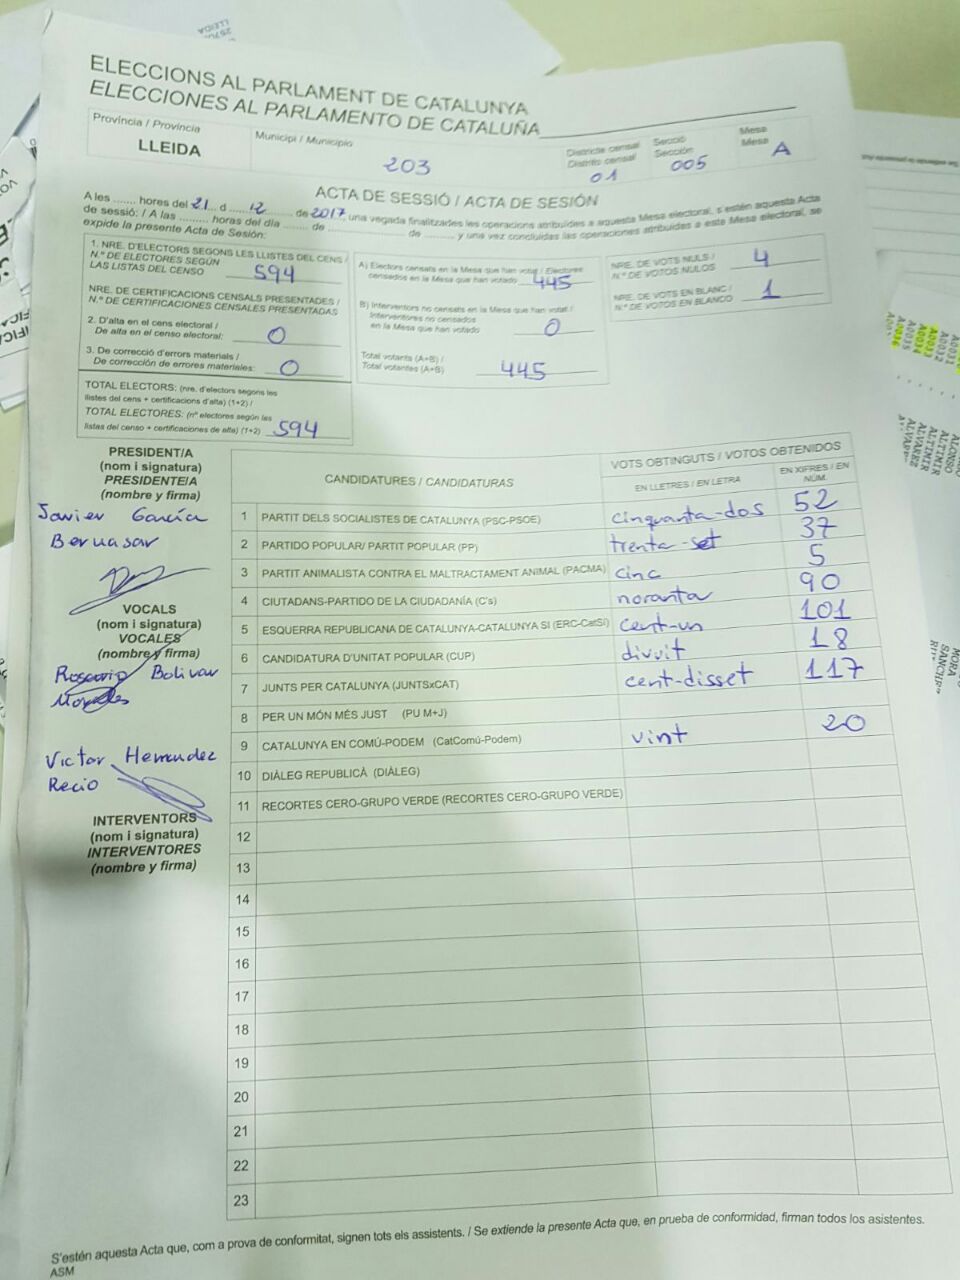 ELECCIONS AL PARLAMENT DE CATALUNYA
ELECCIONES AL PARLAMENTO DE CATALUÑA
Província / Provincia
LLEIDA
Municipi / Municipio
203
Districte censal
Distrito censal
01
Secció
Sección
005
Mesa
Mesa
A
ACTA DE SESSIÓ / ACTA DE SESIÓN
A les ....... hores del 21 d ..... 12 ....... de 2017, una vegada finalitzades les operacions atribuïdes a aquesta Mesa electoral, s'estén aquesta Acta
de sessió: / A las ......... horas del día ....... de ................ de ........ y una vez concluidas las operaciones atribuidas a esta Mesa electoral, se
expide la presente Acta de Sesión:
1. NRE. D'ELECTORS SEGONS LES LLISTES DEL CENS /
N.º DE ELECTORES SEGÚN
LAS LISTAS DEL CENSO 594
NRE. DE CERTIFICACIONS CENSALS PRESENTADES /
N.º DE CERTIFICACIONES CENSALES PRESENTADAS
2. D'alta en el cens electoral /
De alta en el censo electoral: 0
3. De correcció d'errors materials /
De corrección de errores materiales: 0
TOTAL ELECTORS: (nre. d'electors segons les
llistes del cens + certificacions d'alta) (1+2) /
TOTAL ELECTORES: (nº electores según las
listas del censo + certificaciones de alta) (1+2) 594
A) Electors censats en la Mesa que han votat / Electores
censados en la Mesa que han votado 445
B) Interventors no censats en la Mesa que han votat /
Interventores no censados
en la Mesa que han votado 0
Total votants (A+B) /
Total votantes (A+B) 445
NRE. DE VOTS NULS /
N.º DE VOTOS NULOS 4
NRE. DE VOTS EN BLANC /
N.º DE VOTOS EN BLANCO 1
PRESIDENT/A
(nom i signatura)
PRESIDENTE/A
(nombre y firma)
Javier García
Bernasar
VOCALS
(nom i signatura)
VOCALES
(nombre y firma)
Rosario Bolivar
Morales
Victor Hernandez
Recio
INTERVENTORS
(nom i signatura)
INTERVENTORES
(nombre y firma)
CANDIDATURES / CANDIDATURAS
VOTS OBTINGUTS / VOTOS OBTENIDOS
EN LLETRES / EN LETRA
EN XIFRES / EN
NÚM.
1 PARTIT DELS SOCIALISTES DE CATALUNYA (PSC-PSOE) cinquanta-dos 52
2 PARTIDO POPULAR/ PARTIT POPULAR (PP) trenta-set 37
3 PARTIT ANIMALISTA CONTRA EL MALTRACTAMENT ANIMAL (PACMA) cinc 5
4 CIUTADANS-PARTIDO DE LA CIUDADANÍA (C's) noranta 90
5 ESQUERRA REPUBLICANA DE CATALUNYA-CATALUNYA SÍ (ERC-CatSí) cent-un 101
6 CANDIDATURA D'UNITAT POPULAR (CUP) divuit 18
7 JUNTS PER CATALUNYA (JUNTSxCAT) cent-disset 117
8 PER UN MÓN MÉS JUST (PU M+J)
9 CATALUNYA EN COMÚ-PODEM (CatComú-Podem) vint 20
10 DIÀLEG REPUBLICÀ (DIÀLEG)
11 RECORTES CERO-GRUPO VERDE (RECORTES CERO-GRUPO VERDE)
12
13
14
15
16
17
18
19
20
21
22
23
S'estén aquesta Acta que, com a prova de conformitat, signen tots els assistents. / Se extiende la presente Acta que, en prueba de conformidad, firman todos los asistentes.
ASM
LLEIDA
A0031
A0032
A0033
A0034
A0035
A0036
ALONSO
ALTIMIR
ALTIMIR
ALVAREZ
MORA